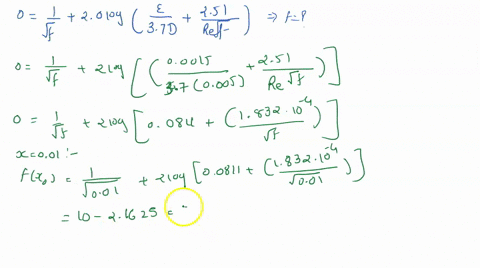 0 = 1/√f + 2.0 log ( ε/3.7D + 2.51/Re√f ) ⇒ f=?
0 = 1/√f + 2 log [ ( 0.0015/3.7(0.005) + 2.51/Re√f ) ]
0 = 1/√f + 2 log [ 0.0811 + ( 1.832·10⁻⁴/√f ) ]
x=0.01 :-
F(x₀) = 1/√0.01 + 2 log [ 0.0811 + ( 1.832·10⁻⁴/√0.01 ) ]
= 10 - 2.1625 =